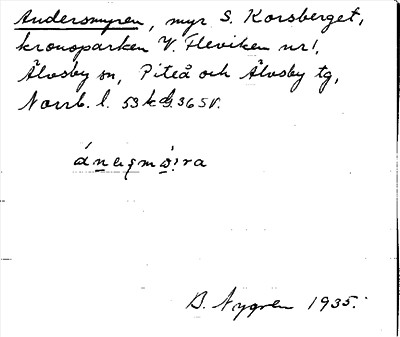 Andersmyren, myr S. Korsberget,
kronoparken V. Fleviken nr 1,
Älvsby sn, Piteå och Älvsby tg,
Norrb. l. 53 k d. 36 SV.
B. Nygren 1935.